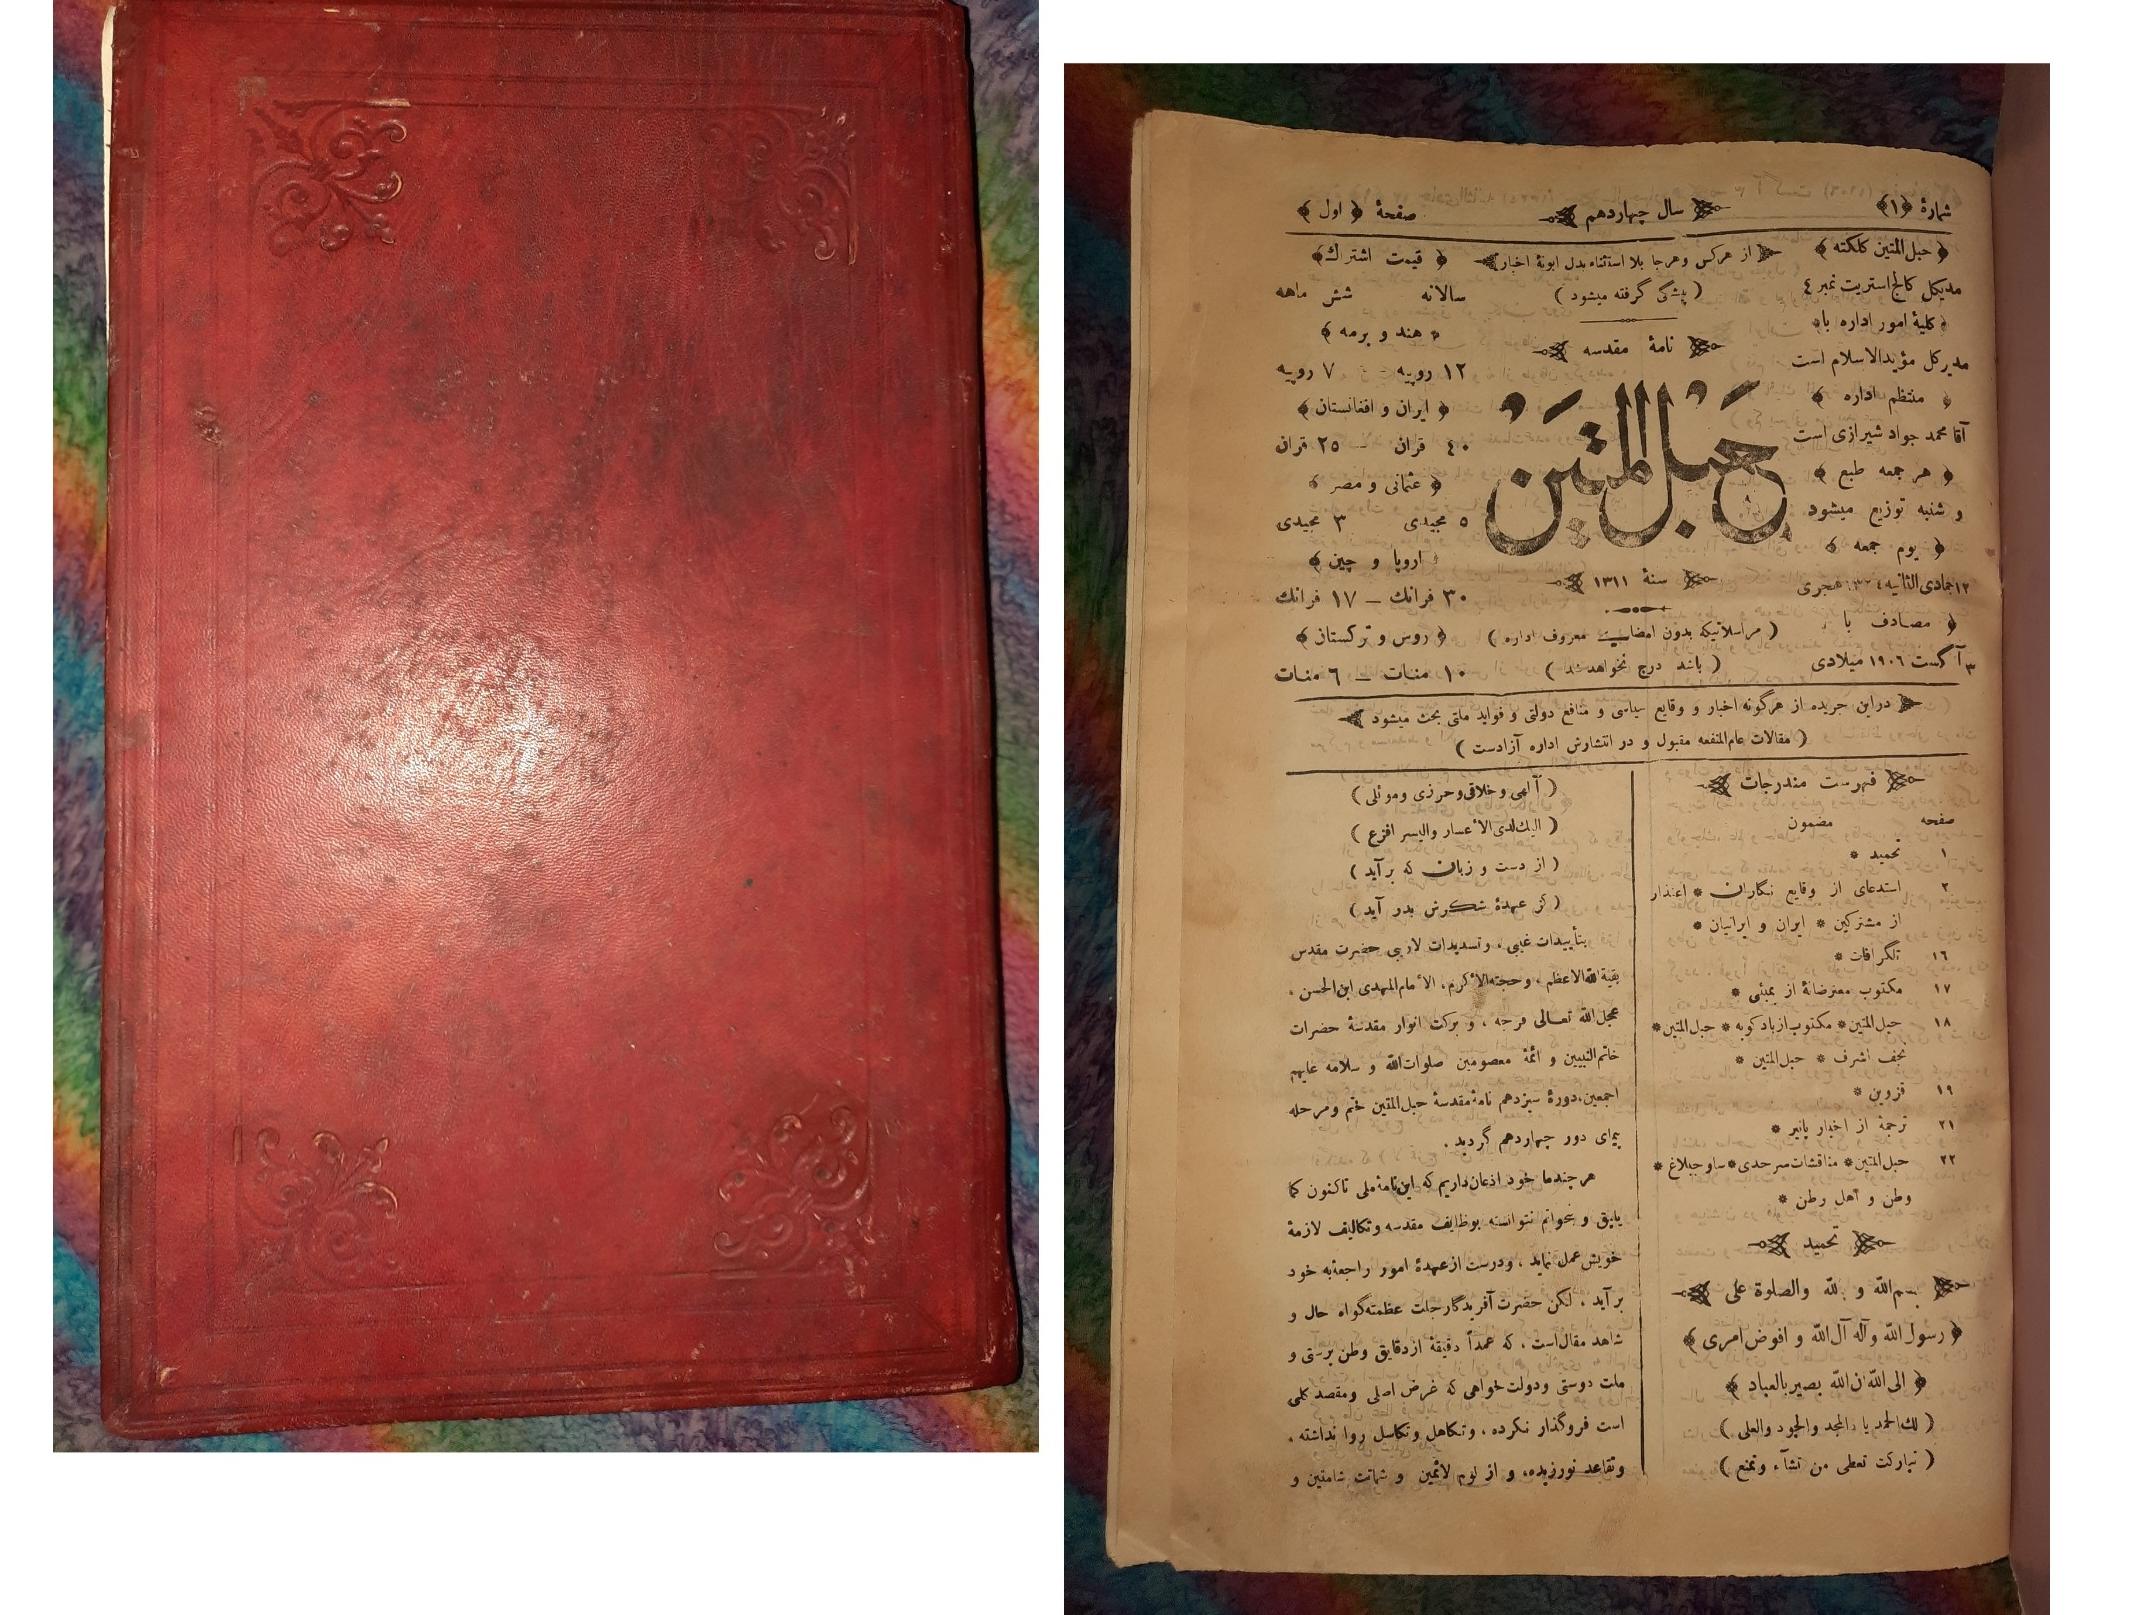 شمارۀ ﴿۱﴾
سال چهاردهم
صفحۀ ﴿ اول ﴾
﴿ حبل‌المتین کلکته ﴾
مدیکل کالج استریت نمبر ٤
﴿ کلیۀ امور اداره با ﴾
مدیرکل مؤیدالاسلام است
﴿ منتظم اداره ﴾
آقا محمد جواد شیرازی است
﴿ هر جمعه طبع ﴾
و شنبه توزیع میشود
﴿ یوم جمعه ﴾
۱۲ جمادی‌الثانیه ۱۳۲٤ هجری
﴿ مصادف با ﴾
۳ آگست ۱۹۰٦ میلادی
از هرکس و هرجا بلا استثناء بدل ابونۀ اخبار
( پیشگی گرفته میشود )
نامۀ مقدسه
حَبْلُ المتَیْن
سنۀ ۱۳۱۱
( مراسلاتیکه بدون امضای معروف اداره )
( باشد درج نخواهد شد )
﴿ قیمت اشتراک ﴾
سالانه شش ماهه
﴿ هند و برمه ﴾
۱۲ روپیه – ۷ روپیه
﴿ ایران و افغانستان ﴾
٤۰ قران – ۲٥ قران
﴿ عثمانی و مصر ﴾
٥ مجیدی ۳ مجیدی
﴿ اروپا و چین ﴾
۳۰ فرانک – ۱۷ فرانک
﴿ روس و ترکستان ﴾
۱۰ منات – ٦ منات
دراین جریده از هرگونه اخبار و وقایع سیاسی و منافع دولتی و فواید ملتی بحث میشود
( مقالات عام‌المنفعه مقبول و در انتشارش اداره آزادست )
فهرست مندرجات
صفحه مضمون
۱ تحمید *
۲ استدعای از وقایع نگاران * اعتذار
از مشترکین * ایران و ایرانیان *
۱٦ تلگرافات *
۱۷ مکتوب معترضانۀ از بمبئی *
۱۸ حبل‌المتین * مکتوب از بادکوبه * حبل‌المتین *
نجف اشرف * حبل‌المتین *
۱۹ قزوین *
۲۱ ترجمۀ از اخبار پانیر *
۲۲ حبل‌المتین * مناقشات سرحدی * ساوجبلاغ *
وطن و اهل وطن *
تحمید
بسم‌الله و بالله والصلوة علی
﴿ رسول الله وآله آل‌الله و افوض امری ﴾
﴿ الی الله ان الله بصیر بالعباد ﴾
( لك الحمد یا ذالمجد والجود والعلی )
( تبارکت تعطی من تشآء وتمنع )
( آلهی وخلاقی وحرزی وموئلی )
( الیك لدی الأعسار والیسر افزع )
( از دست و زبان که بر آید )
( کز عهدۀ شکرش بدر آید )
بتأییدات غیبی ، وتسدیدات لاریبی حضرت مقدس
بقیة‌الله‌الاعظم ، وحجته‌الأکرم، الأمام‌المهدی ابن‌الحسن ،
عجل‌الله تعالی فرجه ، و برکت انوار مقدسۀ حضرات
خاتم‌النبیین و ائمۀ معصومین صلوات‌الله و سلامه علیهم
اجمعین، دورۀ سیزدهم نامۀ مقدسۀ حبل‌المتین ختم ومرحله
پیمای دور چهاردهم گردید .
هرچند ما خود اذعان داریم که این نامۀ ملی تاکنون کما
یلیق و ینبغی نتوانسته بوظایف مقدسه وتکالیف لازمۀ
خویش عمل نماید ، ودرست ازعهدۀ امور راجعۀ به خود
برآید ، لکن حضرت آفریدگار جلت عظمته گواه حال و
شاهد مقال است ، که عمداً دقیقۀ از دقایق وطن پرستی و
ملت دوستی ودولت خواهی که غرض اصلی ومقصد کلی
است فروگذار نکرده ، وتکاهل وتکاسل روا نداشته ،
وتقاعد نورزیده، و از لوم لائمین و شماتت شامتین و